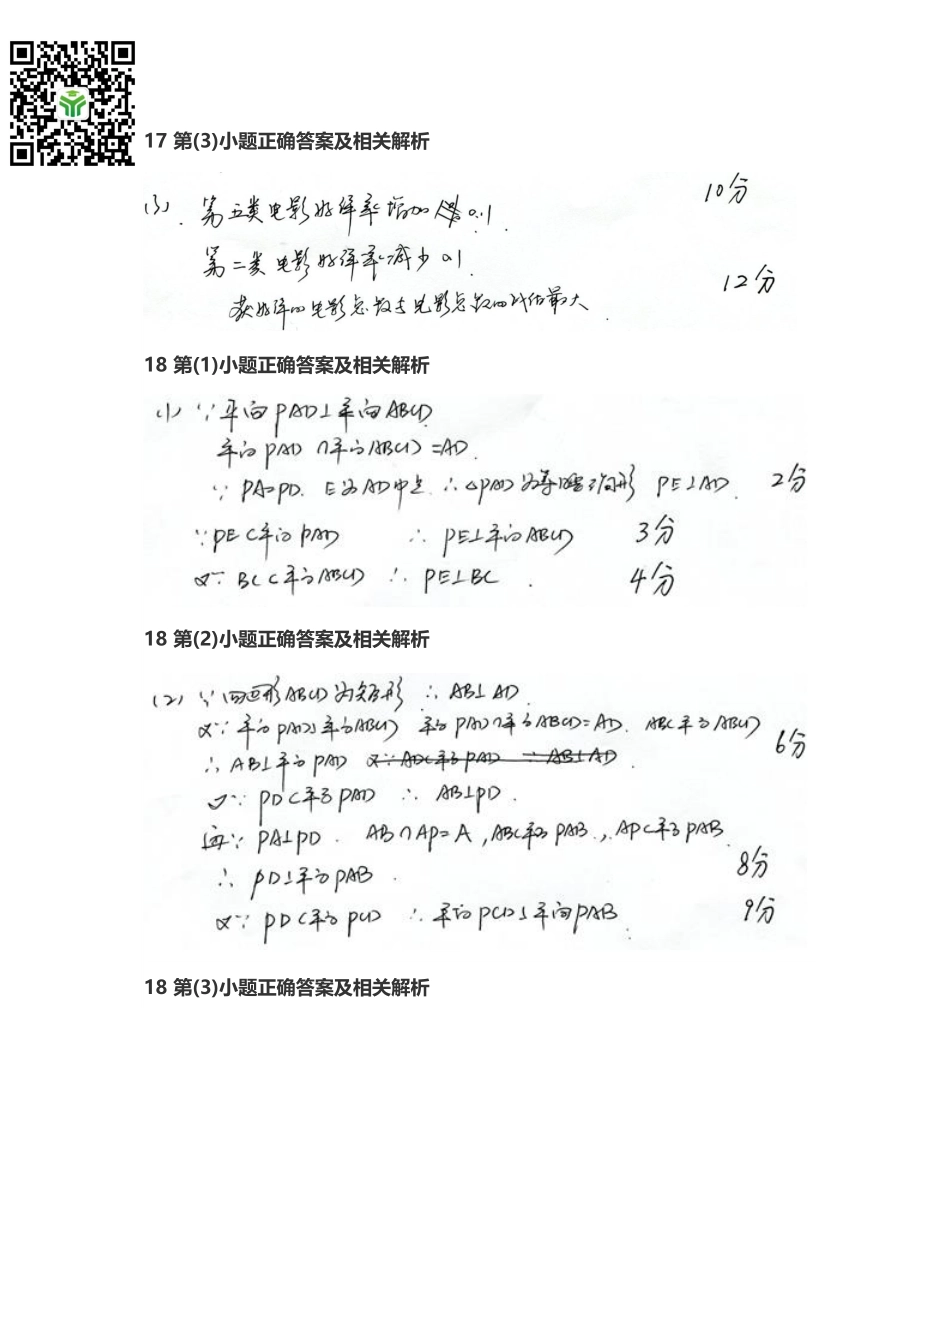 17 第(3)小题正确答案及相关解析
(3). 第五类电影好评率增加 0.1. 10分
第二类电影好评率减少 0.1.
12分
获好评的电影总数与电影总数的比值最大.
18 第(1)小题正确答案及相关解析
(1) ∵平面PAD⊥平面ABCD
平面PAD∩平面ABCD=AD.
∵PA=PD. E为AD中点.∴△PAD为等腰三角形 PE⊥AD. 2分
∵PE⊂平面PAD ∴PE⊥平面ABCD 3分
又∵BC⊂平面ABCD ∴PE⊥BC. 4分
18 第(2)小题正确答案及相关解析
(2) ∵四边形ABCD为矩形 ∴AB⊥AD.
又∵平面PAD⊥平面ABCD 平面PAD∩平面ABCD=AD. AB⊂平面ABCD 6分
∴AB⊥平面PAD 又∵AD⊂平面PAD ∴AB⊥AD.
又∵PD⊂平面PAD ∴AB⊥PD.
再∵PA⊥PD. AB∩AP=A, AB⊂平面PAB, AP⊂平面PAB.
∴PD⊥平面PAB. 8分
又∵PD⊂平面PCD ∴平面PCD⊥平面PAB. 9分
18 第(3)小题正确答案及相关解析